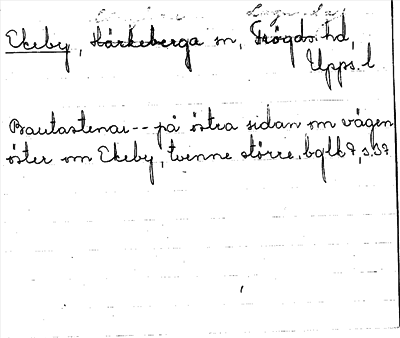 Ekeby, Härkeberga sn, Trögds hd,
Upps. l
Bautastenar -- på östra sidan om vägen
öster om Ekeby, tvenne större. bglb 7, s. 37